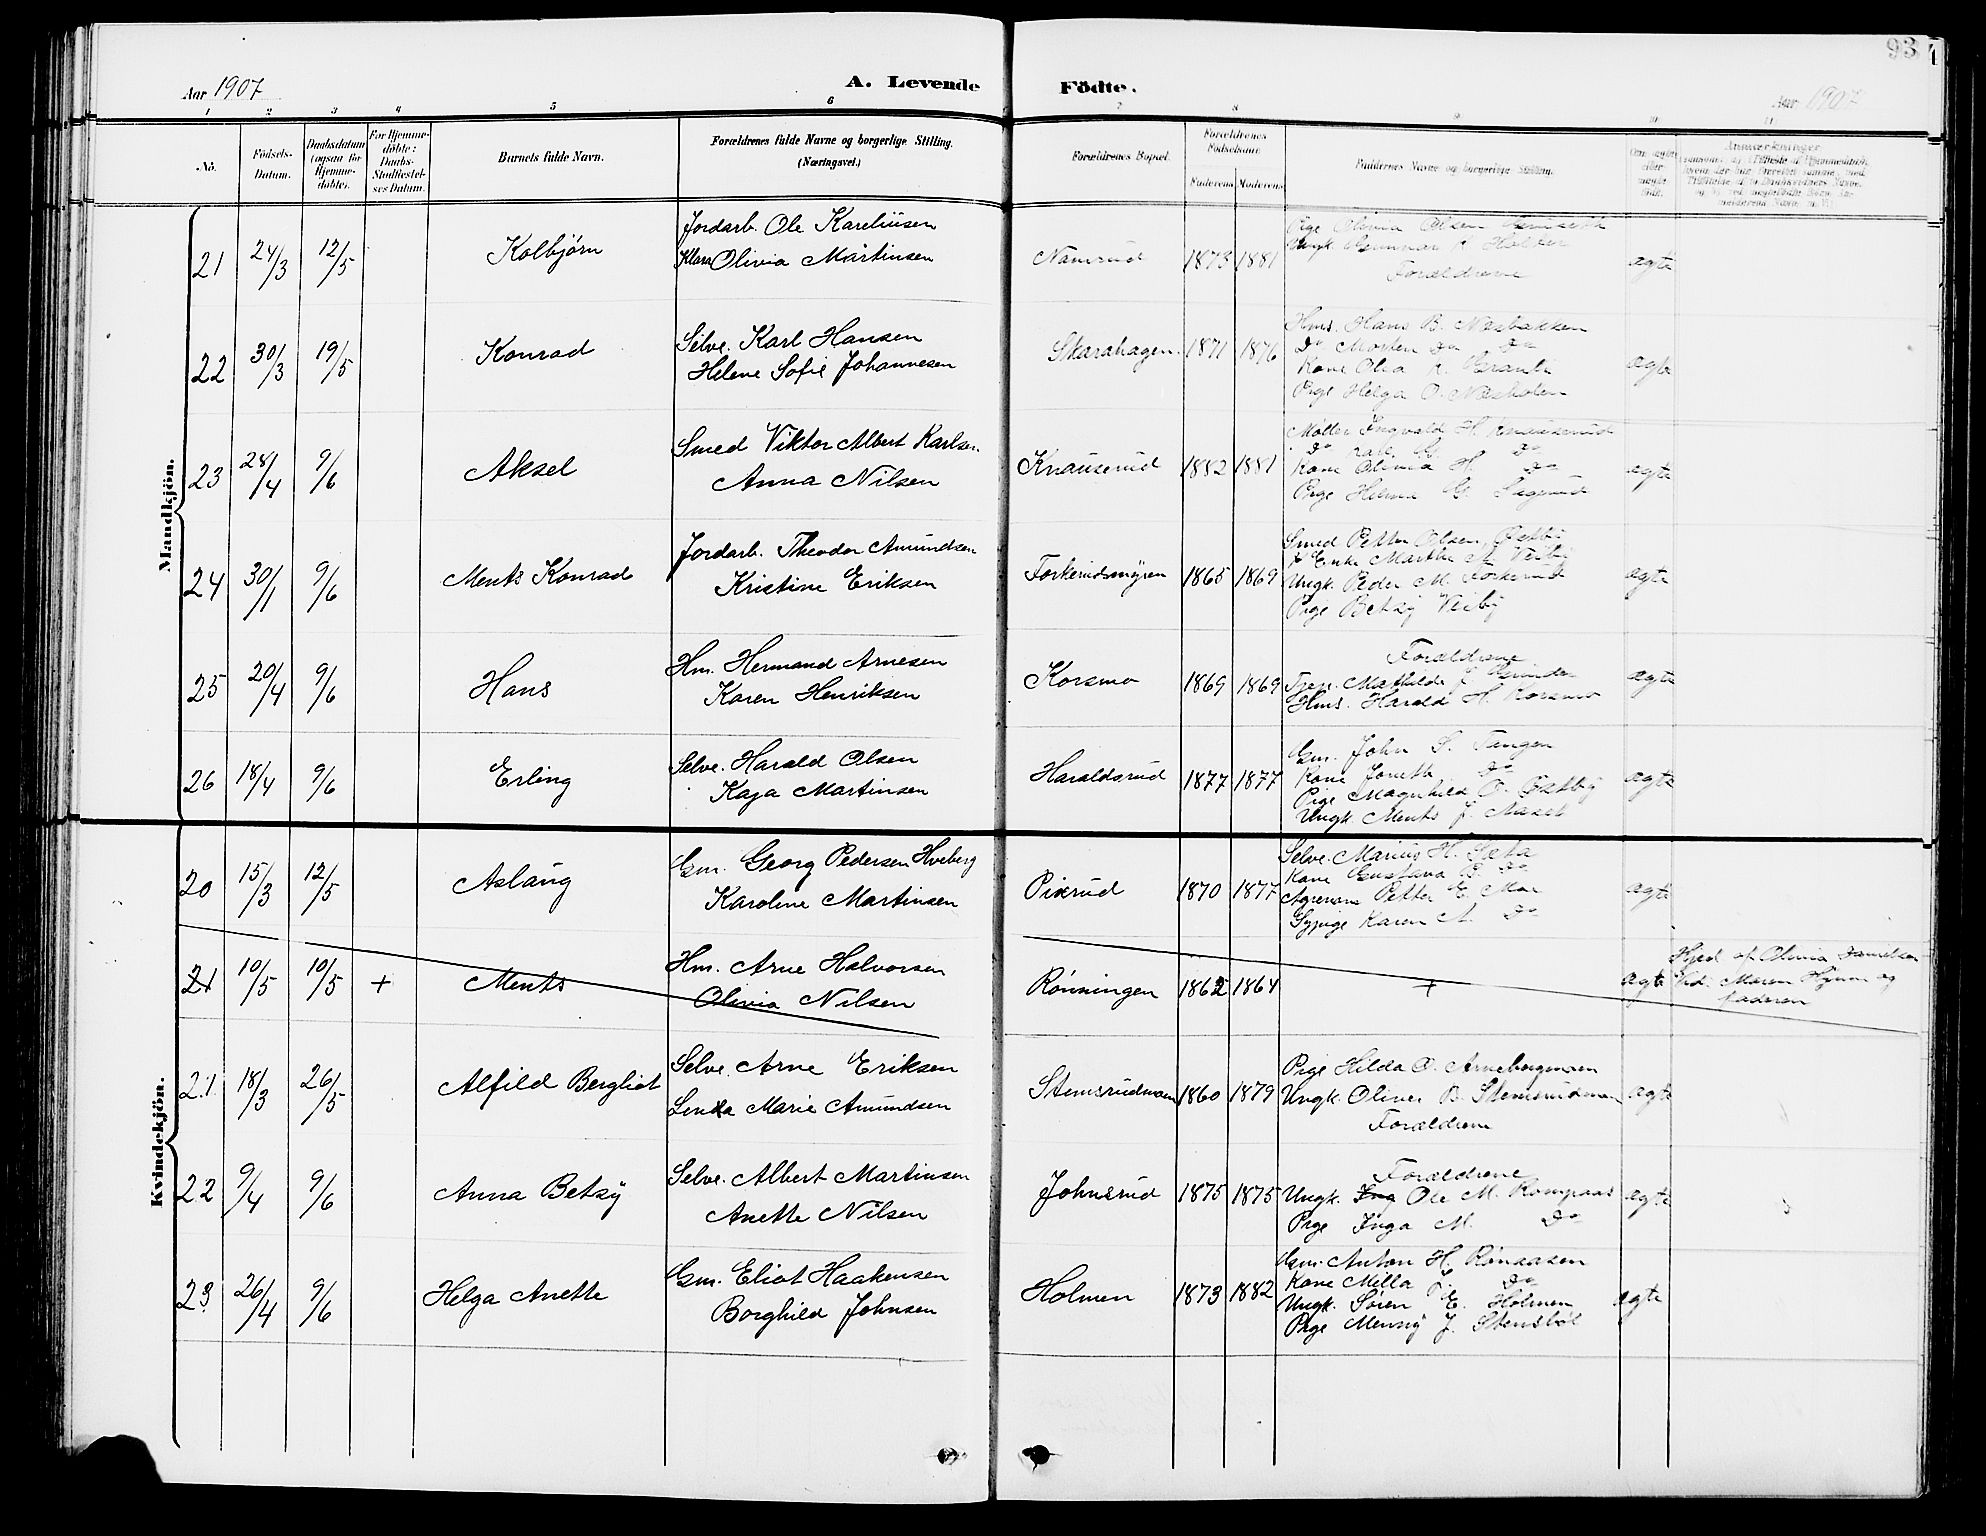 93
Aar 1907
A. Levende Födte.
Aar 1907
1 2 3 4 5 6 7 8 9 10 11
No.
Födsels-Datum.
Daabsdatum (ogsaa for Hjemme-döbte).
For Hjemme-döbte: Daabs-Stadfæstel-ses Datum.
Barnets fulde Navn.
Forældrenes fulde Navne og borgerlige Stilling.
(Næringsvei.)
Forældrenes Bopæl.
Forældrenes Födselsaar
Faderens Moderens
Faddernes Navne og borgerlige Stilling.
Om ægte eller uægte født.
Anmærkninger
Mandkjön.
21 24/3 12/5 Kolbjørn
Jordarb. Ole Kareliüsen
Klara Olivia Martinsen
Namrud 1873 1881
Pige Olivia Olsen
Ungk. Gunnar K.
Forældrene
ægte
22 30/3 19/5 Konrad
Selve. Karl Hansen
Helene Sofie Johannesen
Skarahagen. 1871 1876
Hms. Hans B. Næsbakken
Do Morten Do Do
Kone Olea K. Braate
Pige Helga O. Næsholen
ægte
23 28/4 9/6 Aksel
Smed Viktor Albert Karlsen
Anna Nilsen
Knauserud 1882 1881
Møller Ingvald H. Knauserud
Do Karl Do
Kone Olivia H. Do
Pige Helma G. Sagerud
ægte
24 30/1 9/6 Ments Konrad
Jordarb. Theodor Amundsen
Kristine Eriksen
Forkerudsmyren 1865 1869
Smed Petter Olsen
Enke Marthe M. Veiby
Ungk. Peder M. Forkerud
Pige Betsy Veiby
ægte
25 20/4 9/6 Hans
Hm. Hermand Arnesen
Karen Henriksen
Korsmo 1869 1869
Forældrene
Tjen. Mathilde J.
Hms. Harald H. Korsmo
ægte
26 18/4 9/6 Erling
Selve. Harald Olsen
Kaja Martinsen
Haraldsrud 1877 1877
Gm. John S. Tangen
Kone Jonette Do
Pige Magnhild O. Østby
Ungk. Ments J.
ægte
Kvindekjön.
20 15/3 12/5 Aslaug
Gm. Georg Pedersen Hveberg
Karoline Martinsen
Pixrud 1870 1877
Selve. Marius H. Sæta
Kone Gustava B. Do
Petter E. Moe
Sypige Karen A. Do
ægte
21 10/5 10/5 + Ments
Hm. Arne Halvorsen
Olivia Nilsen
Rønningen 1862 1864
+
ægte
Hjd. af Olivia Danielsen
Vid: Maren Hynne og
faderen
21 18/3 26/5 Alfild Bergliot
Selve. Arne Eriksen
Linda Marie Amundsen
Stemsrudmoen 1860 1879
Pige Hilda O. Arnebergmoen
Ungk. Oliver B. Stemsrudmoen
Forældrene
ægte
22 9/4 9/6 Anna Betsy
Selve. Albert Martinsen
Anette Nilsen
Johnsrud 1875 1875
Forældrene
Ungk. Ole M. Rompaas
Pige Inga M. Do
ægte
23 26/4 9/6 Helga Anette
Gm. Eliot Haakensen
Borghild Johnsen
Holmen 1873 1882
Gm. Anton H. Rønaasen
Kone Milla T. Do
Ungk. Søren E. Holmen
Pige Menny J. Stensbøl
ægte